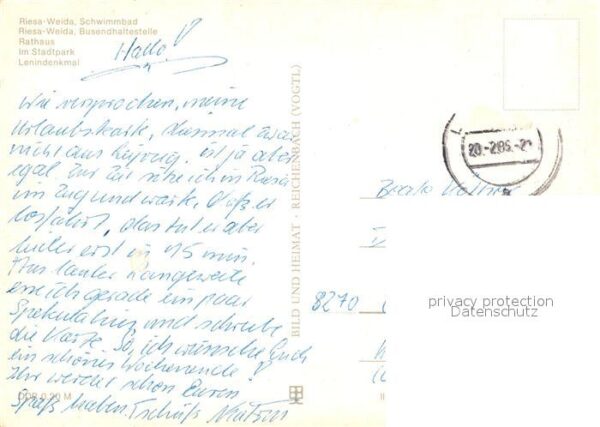 Riesa-Weida, Schwimmbad
Riesa-Weida, Busendhaltestelle
Rathaus
Im Stadtpark
Lenindenkmal
Hallo!
Wie versprochen, meine
Urlaubskarte, diesmal zwar
nicht aus Leipzig, ist ja aber
egal. Zur Zeit sitze ich in Riesa
im Zug und warte, daß er
losfährt, das tut er aber
leider erst in 45 min.
Aus lauter Langeweile
esse ich gerade ein paar
und schreibe
die Karte. So, ich wünsche Euch
ein schönes Wochenende!
Ihr werdet schon Euren
Spaß haben. Tschüß
BILD UND HEIMAT · REICHENBACH (VOGTL)
20.-2.85.-2
Beate
8270
privacy protection
Datenschutz
DDR 0,20 M